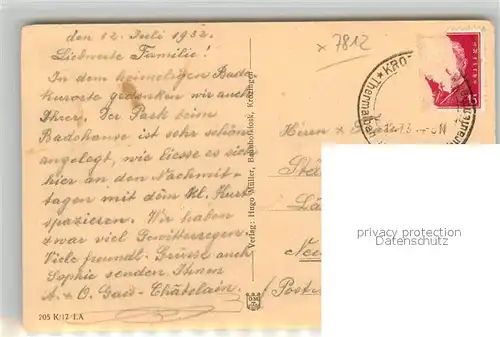 den 12. Juli 1932.
Liebwerte Familie!
In dem heimeligen Bade
kurorte gedenken wir auch
Ihrer. Der Park beim
Badehause ist sehr schön
angelegt, wie liesse es sich
hier an den Nachmit-
tagen mit dem kl. Kurt
spazieren. Wir haben
zwar viel Gewitterregen.
Viele freundl. Grüsse auch
Sophie senden Ihnen
A. & O. Gass-Châtelain.
205 K/17 I.A
Verlag: Hugo Müller, Bahnhofkiosk, Krozingen
x 7812
KRO
Thermalbad
Herrn &
(Post
privacy protection
Datenschutz